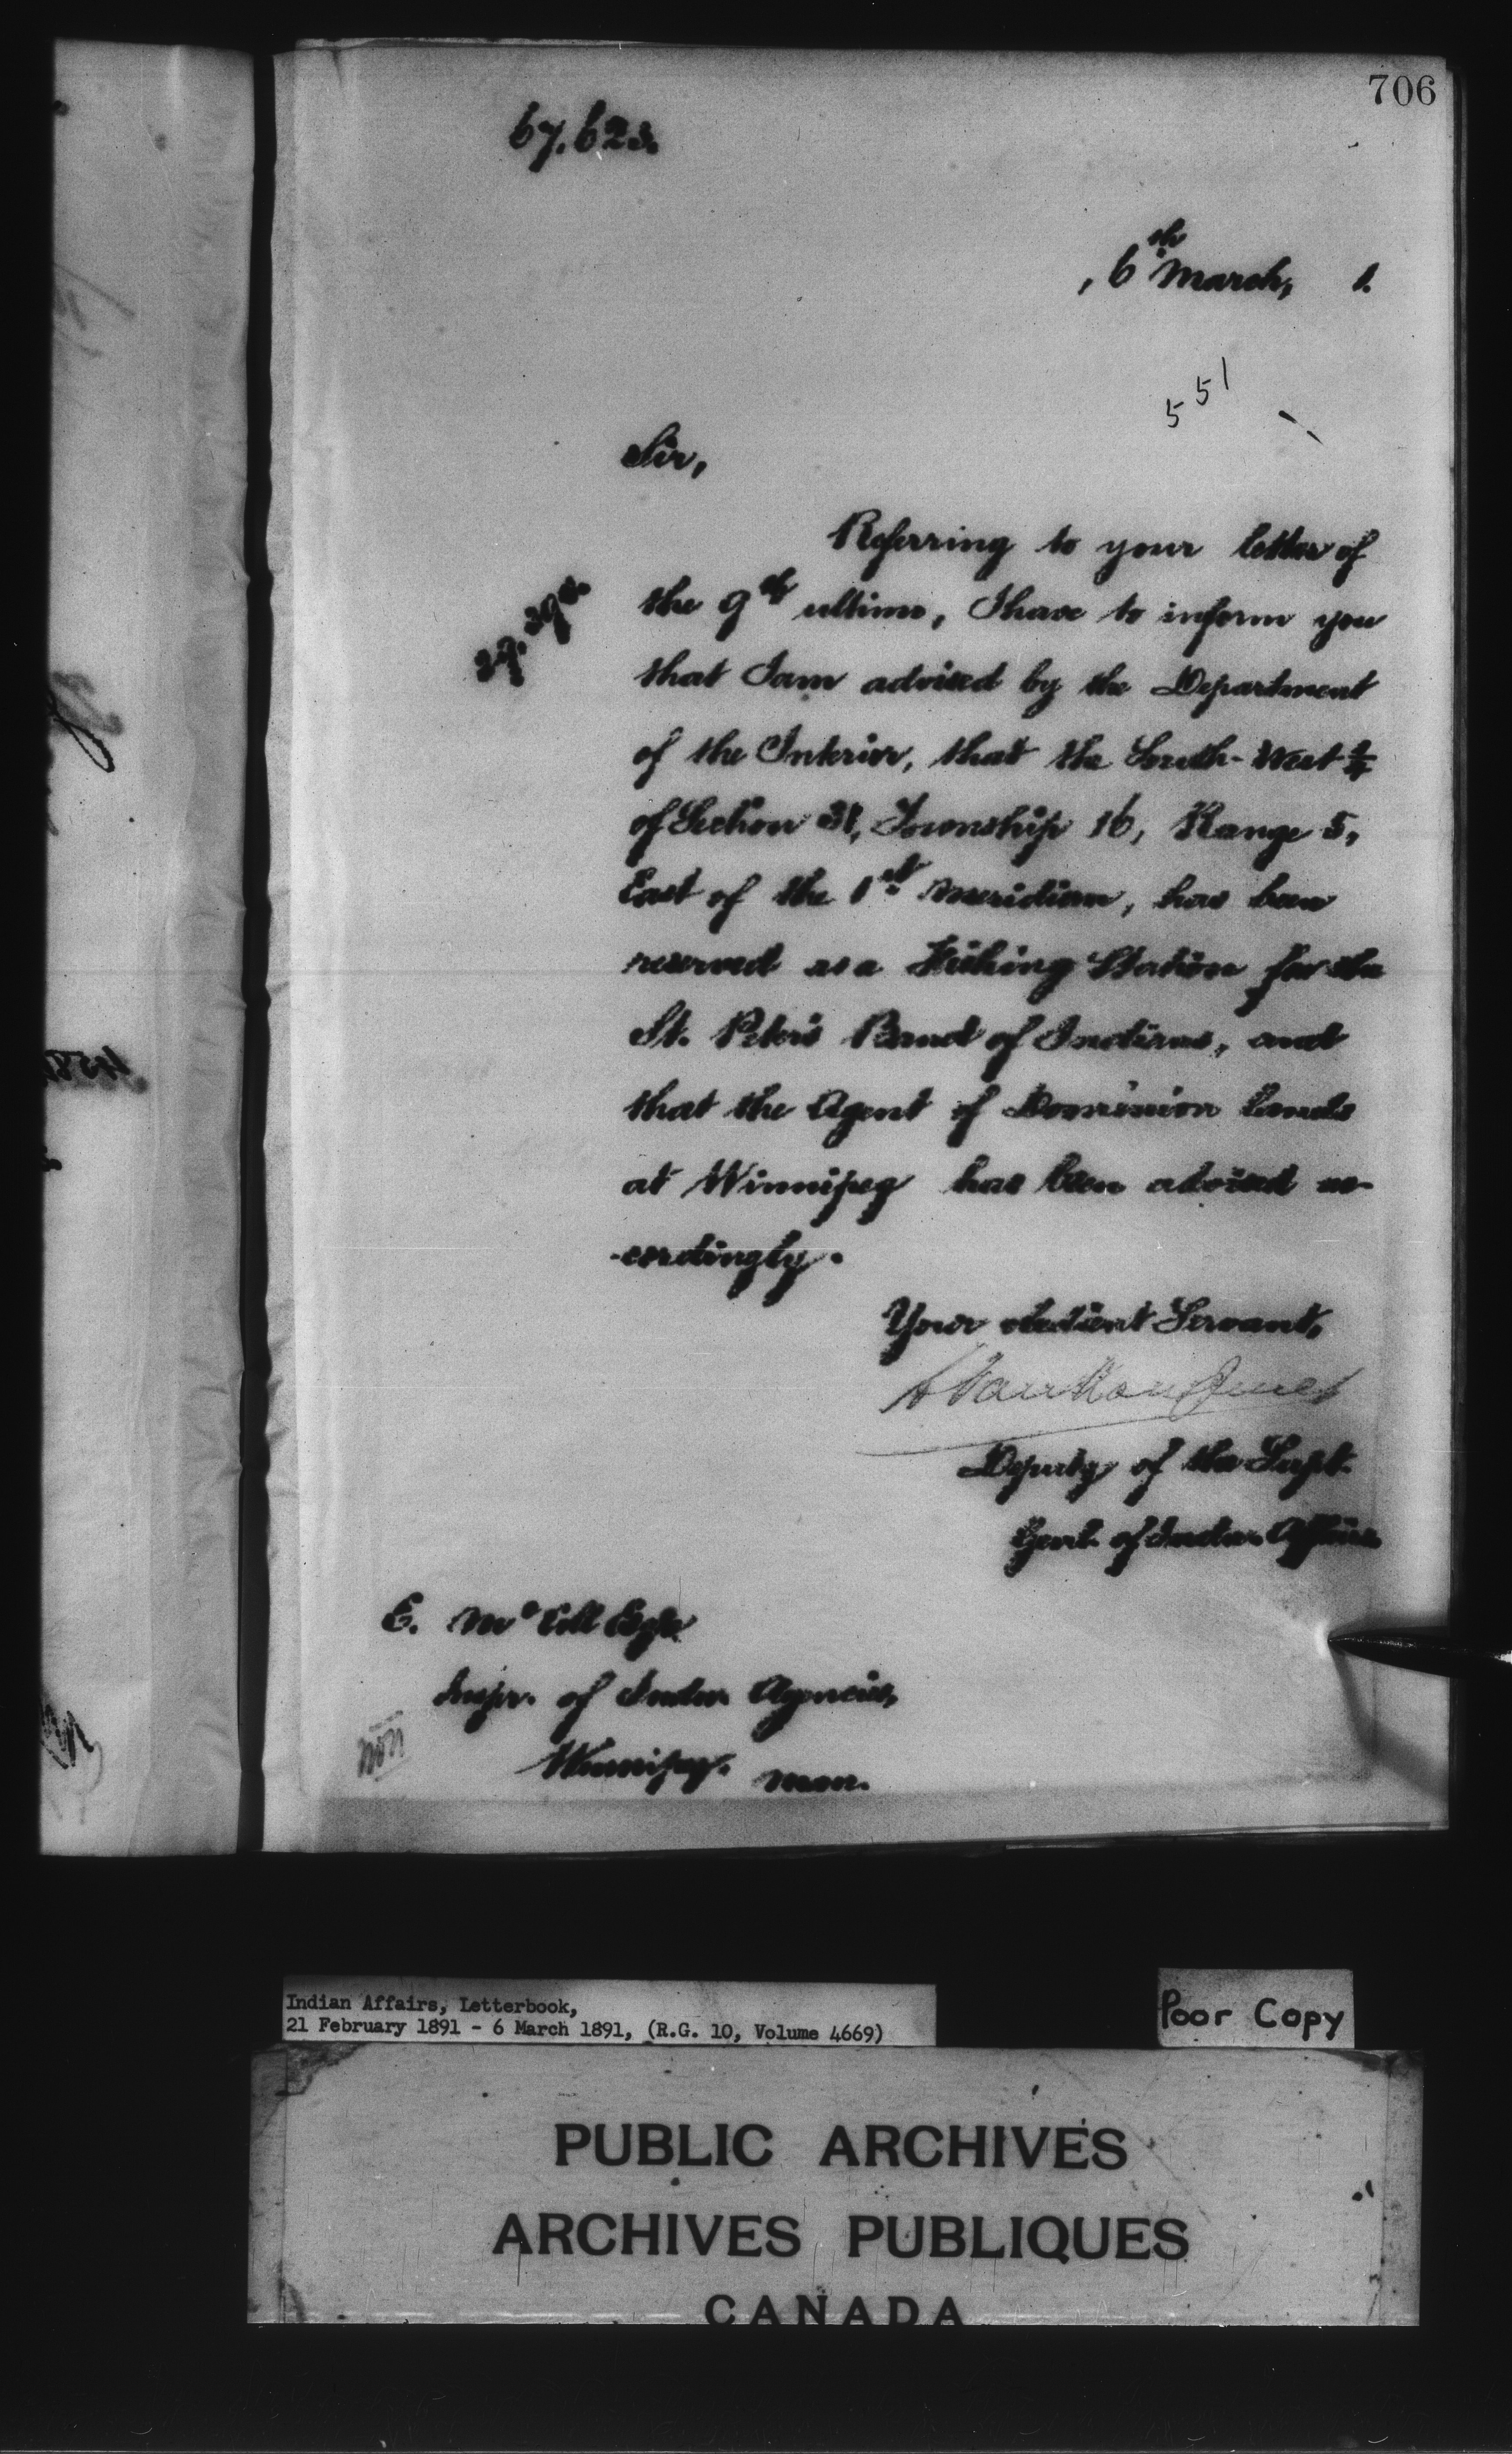 706
67.623.
, 6th March, 1.
551
Sir,
Referring to your letter of
the 9th ultimo, I have to inform you
that I am advised by the Department
of the Interior, that the South-West 1/4
of Section 31, Township 16, Range 5,
East of the 1st Meridian, has been
reserved as a Fishing Station for the
St. Peter's Band of Indians, and
that the Agent of Dominion Lands
at Winnipeg has been advised ac-
-cordingly.
Your obedient Servant,
L VanKoughnet
Deputy of the Supt.
Genl. of Indn. Affairs
E. McColl Esqre
Inspr. of Indn. Agencies,
Winnipeg. Man.
Indian Affairs, Letterbook,
21 February 1891 - 6 March 1891, (R.G. 10, Volume 4669)
Poor Copy
PUBLIC ARCHIVES
ARCHIVES PUBLIQUES
CANADA